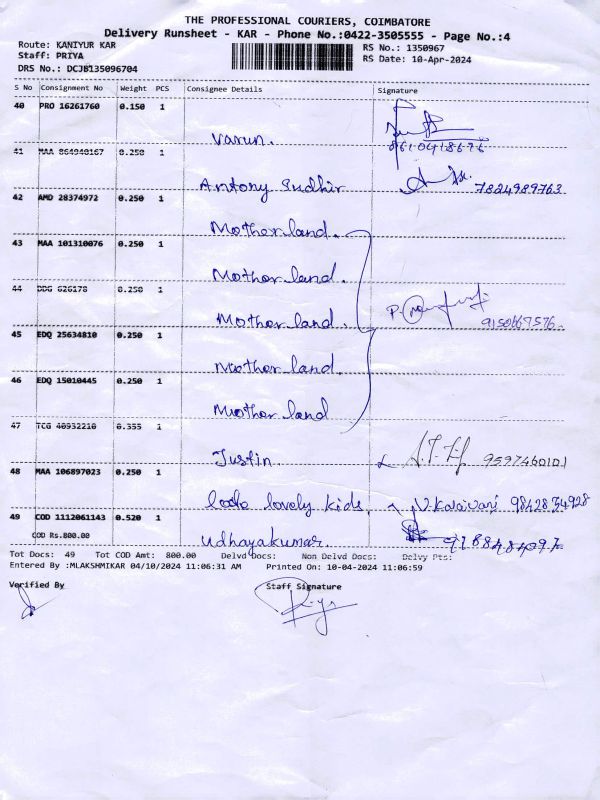 THE PROFESSIONAL COURIERS, COIMBATORE
Delivery Runsheet - KAR - Phone No.:0422-3505555 - Page No.:4
Route: KANIYUR KAR RS No.: 1350967
Staff: PRIYA RS Date: 10-Apr-2024
DRS No.: DCJB135096704
S No Consignment No Weight PCS Consignee Details Signature
40 PRO 16261760 0.150 1
Varun.
41 MAA 864940167 0.250 1
Antony Sudhir 7824989763
42 AMD 28374972 0.250 1
Mother land.
43 MAA 101310076 0.250 1
Mother land.
44 DDG 626178 0.250 1
Mother land. 9150667576
45 EDQ 25634810 0.250 1
Mother land.
46 EDQ 15010445 0.250 1
Mother land
47 TCG 40932210 0.355 1
Justin 9597460101
48 MAA 106897023 0.250 1
lovely kids V. Kalaivani 9842834928
49 COD 1112061143 0.520 1
COD Rs.800.00
Udhayakumar.
Tot Docs: 49 Tot COD Amt: 800.00 Delvd Docs: Non Delvd Docs: Delvy Pts:
Entered By :MLAKSHMIKAR 04/10/2024 11:06:31 AM Printed On: 10-04-2024 11:06:59
Verified By Staff Signature